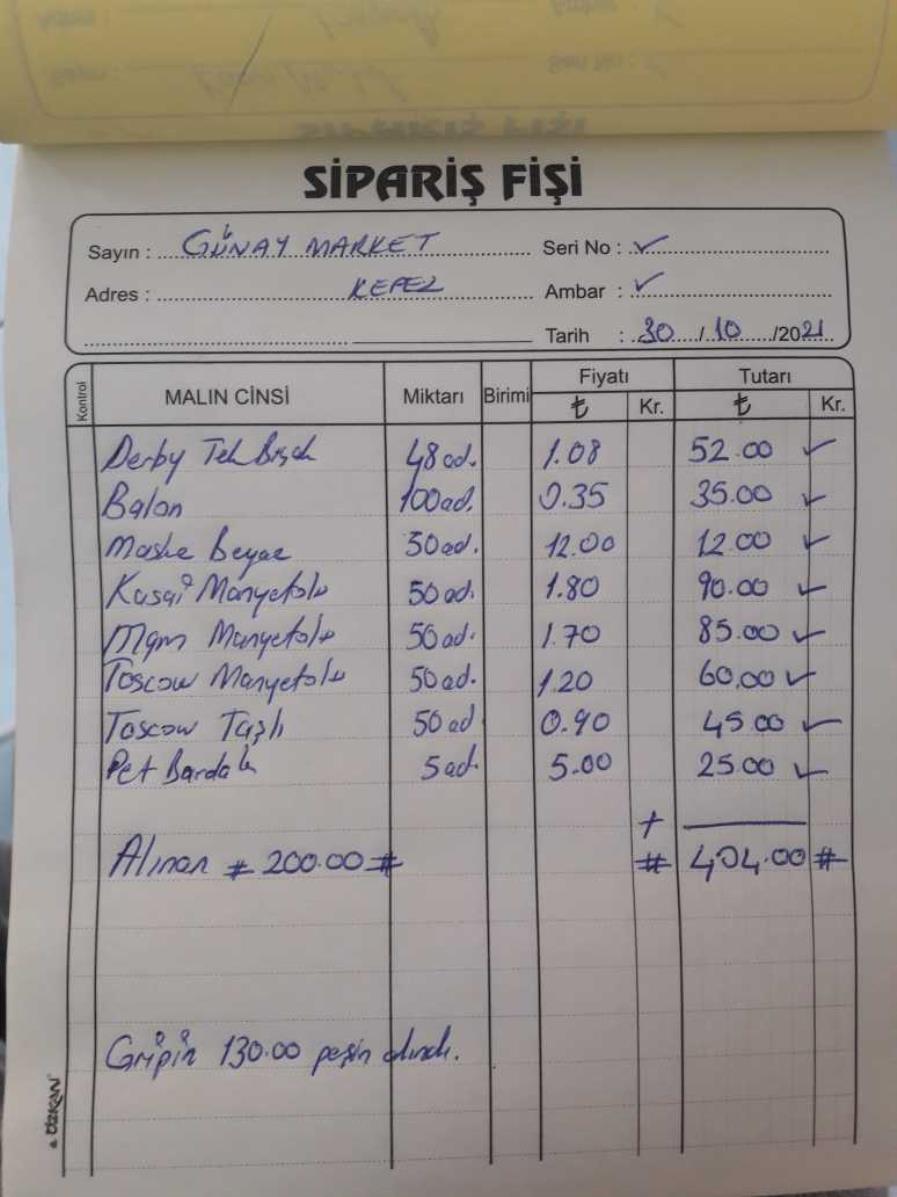 SİPARİŞ FİŞİ
Sayın : GÜNAY MARKET Seri No : ✓
Adres : KEPEZ Ambar : ✓
Tarih : 30 / 10 / 2021
Kontrol MALIN CİNSİ Miktarı Birimi Fiyatı ₺ Kr. Tutarı ₺ Kr.
Derby Tek Bıçak 48 ad. 1.08 52.00 ✓
Balon 100 ad. 0.35 35.00 ✓
Maske Beyaz 50 ad. 12.00 12.00 ✓
Manyetolu 50 ad. 1.80 90.00 ✓
Manyetolu 50 ad. 1.70 85.00 ✓
Toscow Manyetolu 50 ad. 1.20 60.00 ✓
Toscow Taşlı 50 ad 0.90 45.00 ✓
Pet Bardak 5 ad. 5.00 25.00 ✓
+
Alınan # 200.00 # # 404.00 #
Gripin 130.00 peşin alındı.
ÖZKAN